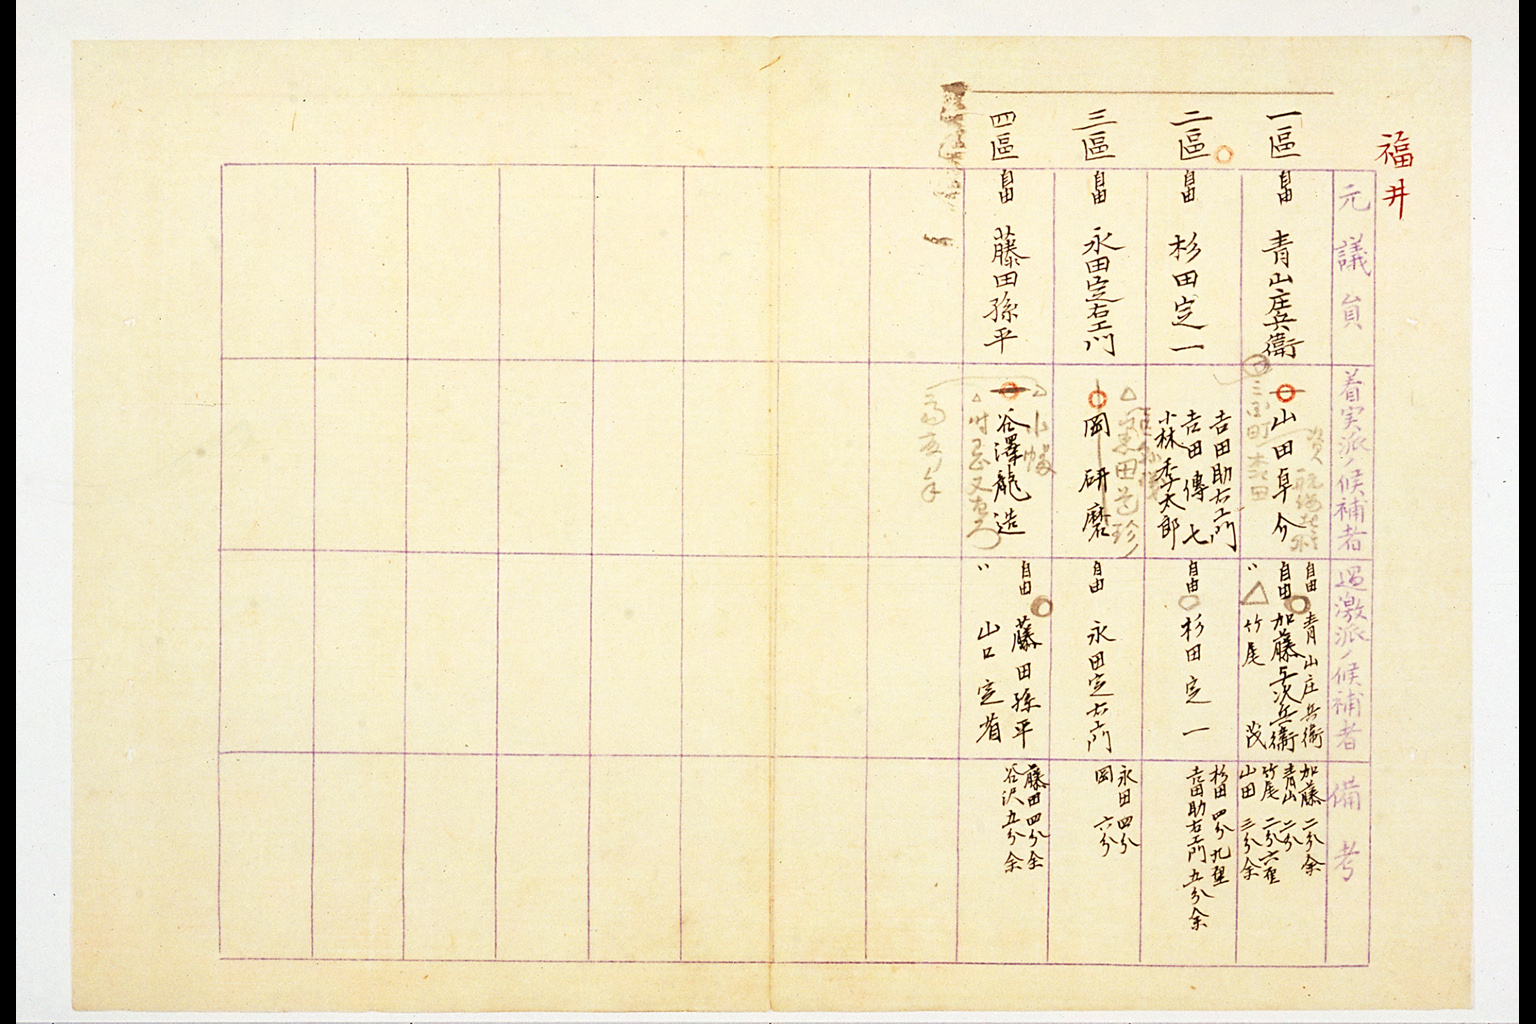 福井
元議員
着実派ノ候補者
過激派ノ候補者
備考
一區
自由 青山庄兵衛
山田卓介
自由 青山庄兵衛
自由 加藤与次兵衛
〃 竹尾茂
加藤 二分余
青山 二分
竹尾 二分六厘
山田 三分余
二區
自由 杉田定一
吉田助右エ門
吉田傳七
小林季太郎
自由 杉田定一
杉田 四分九厘
吉田助右エ門 五分余
三區
自由 永田定右エ門
岡研磨
自由 永田定右エ門
永田 四分
岡 六分
四區
自由 藤田孫平
△小幡
谷澤龍造
自由 藤田孫平
〃 山口定省
藤田四分全
谷沢五分余